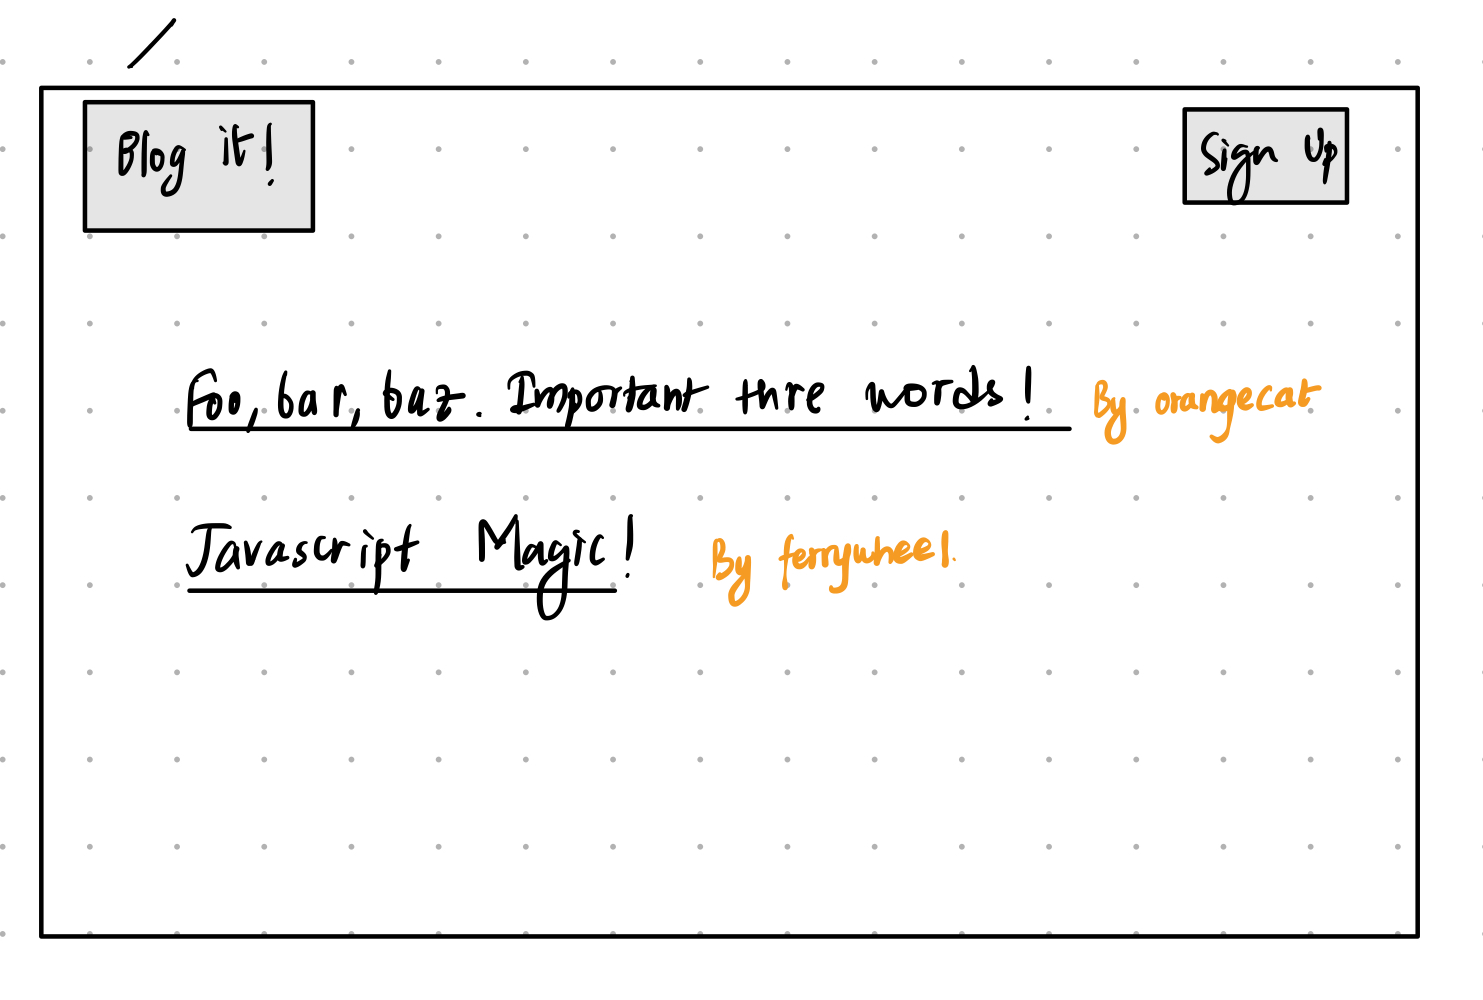 /
Blog it!
Sign Up
Foo, bar, baz. Important thre words! By orangecat
Javascript Magic! By ferrywheel.